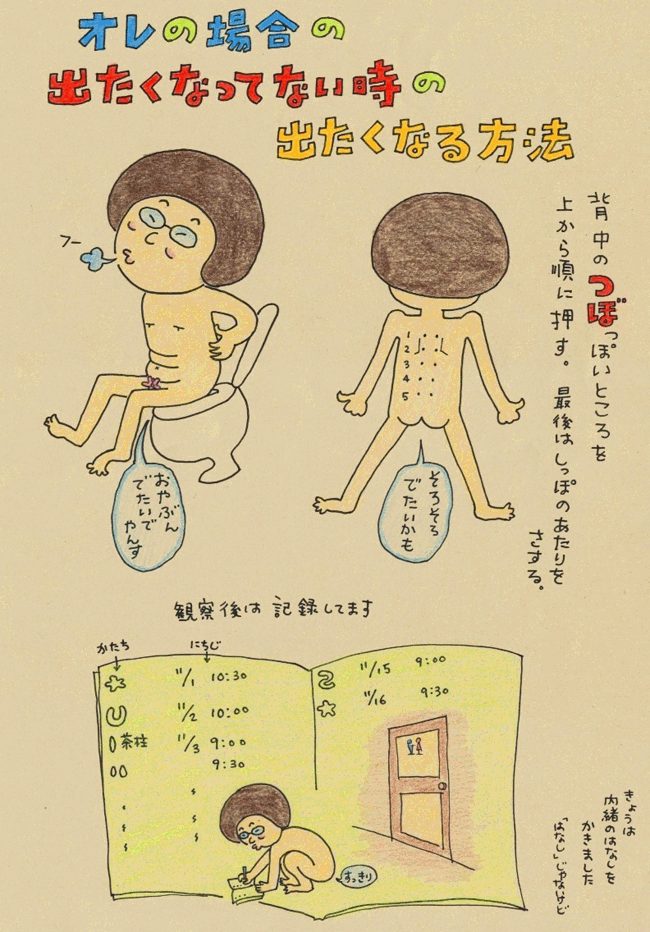 オレの場合の
出たくなってない時の
出たくなる方法
背中のつぼっぽいところを
上から順に押す。最後はしっぽのあたりを
さする。
フー
1
2
3
4
5
おやぶん
でたいで
やんす
そろそろ
でたいかも
観察後は記録してます
かたち
にちじ
11/1 10:30
11/2 10:00
茶柱 11/3 9:00
9:30
11/15 9:00
11/16 9:30
すっきり
きょうは
内緒のはなしを
かきました
「はなし」じゃないけど